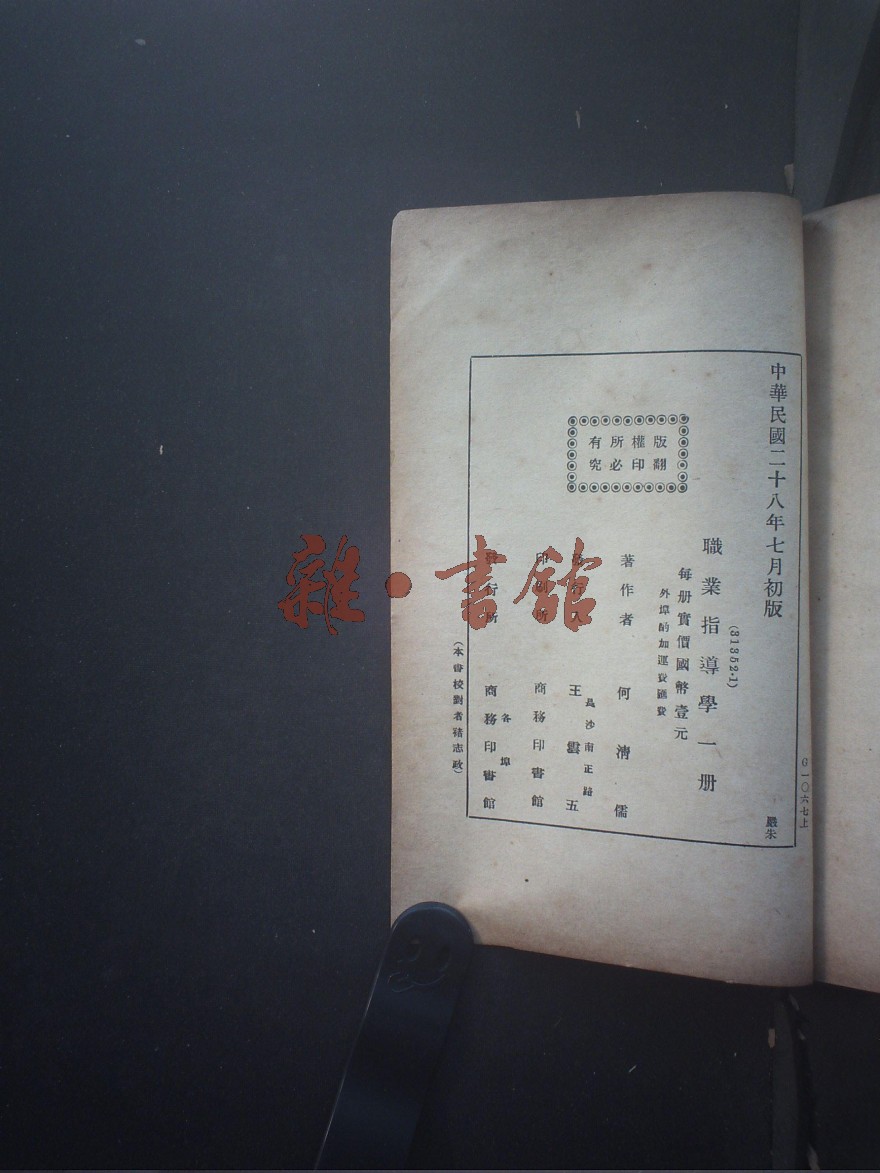 中華民國二十八年七月初版
版權所有
翻印必究
(31352·1)
職業指導學一册
每册實價國幣壹元
外埠酌加運費匯費
著作者 何清儒
發行人 王雲五
長沙南正路
印刷所 商務印書館
發行所 商務印書館
各埠
(本書校對者豬志政)
嚴朱
G一〇六七上
雜·書館